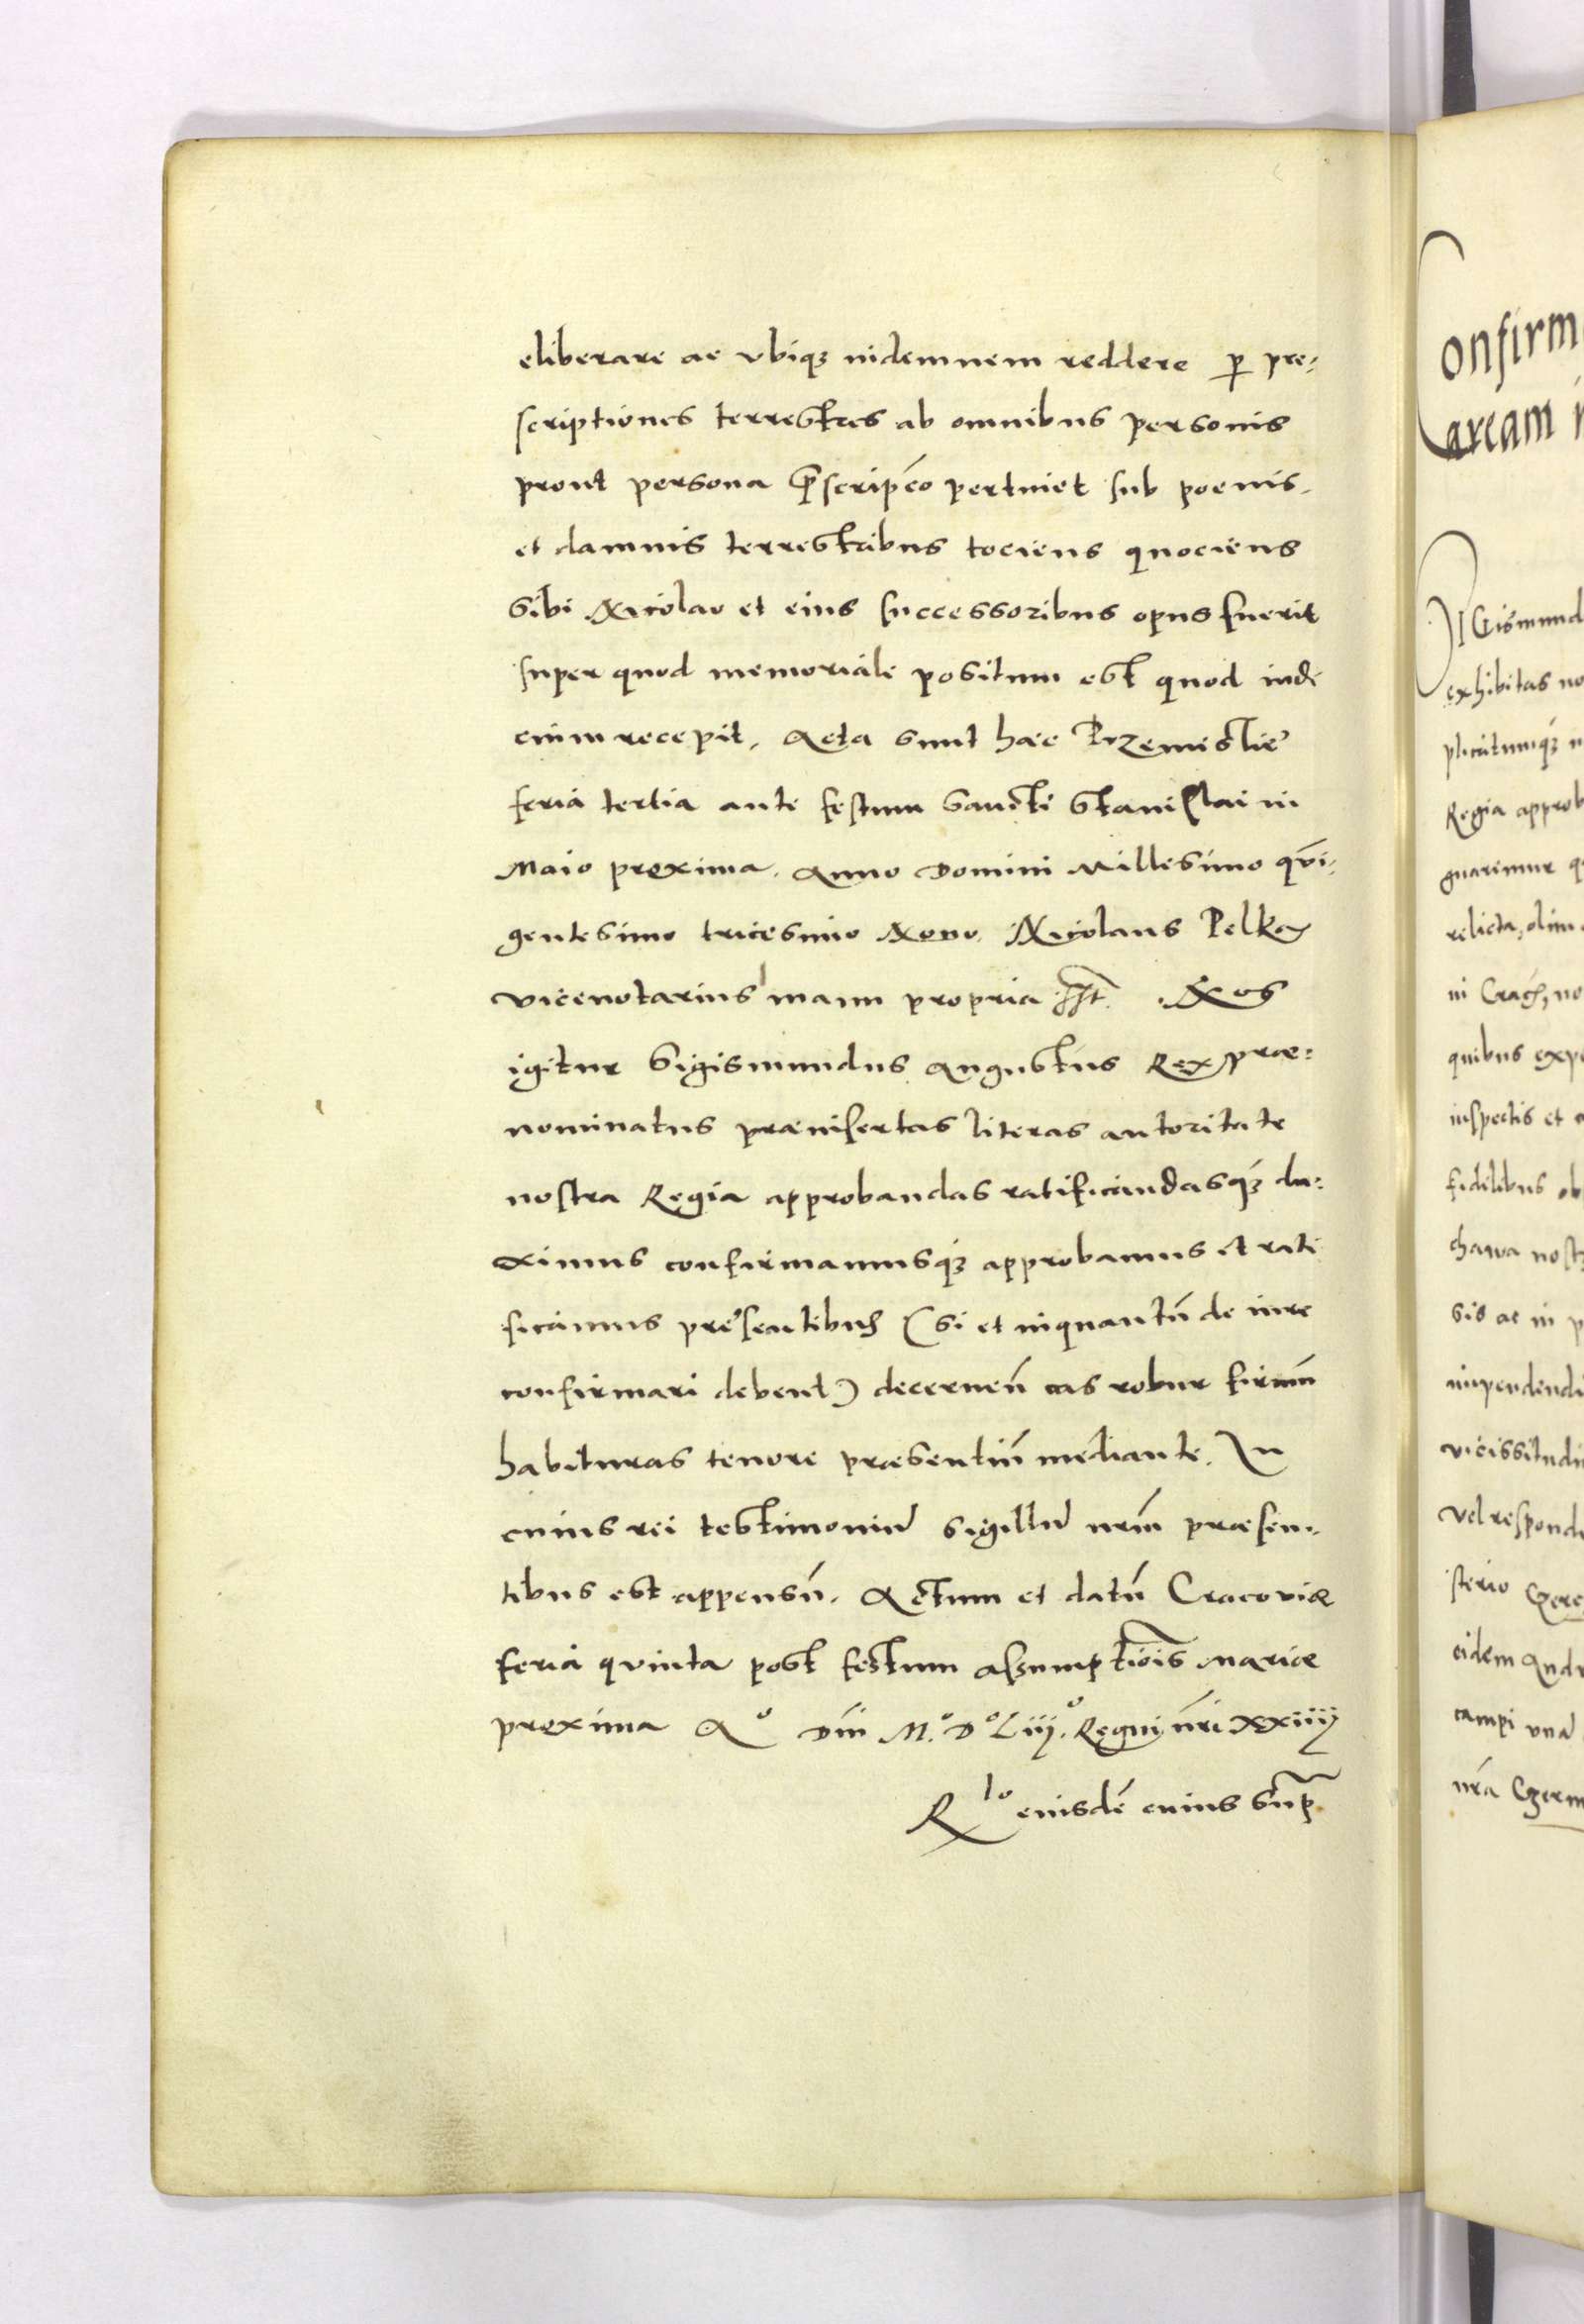 eliberare ac vbiqꝫ indemnem reddere ꝑ pre:
scriptiones terrestres ab omnibus personis
prout persona p̄scripc̄o pertinet sub poenis
et damnis terrestribus tociens quociens
sibi Nicolao et eius successoribus opus fuerit
super quod memoriale positum est quod iude
cium recepit. Acta sunt haec Przemisliẻ
feria tertia ante festum sancti Stanislai in
Maio proxima. Anno Domini Millesimo qvi-
gentesimo tricesimo Nono. Nicolaus Pelka
vicenotarius manu propria sst. Nos
igitur Sigismundus Augustus Rex prae:
nominatus praeinsertas literas autoritate
nostra Regia approbandas ratificandasqꝫ du:
ximus confirmamusqꝫ approbamus et rati
ficamus presentibus (si et inquantū de iure
confirmari debent) decernen̄ eas robur firmū
habituras tenore praesentiū mediante. In
cuius rei testimoniū sigillū nr̄m praesen-
tibus est appensū. Actum et datū Cracoviae
feria qvinta post festum assumptiōis Mariae
proxima Aº Dn̄i M.º Dº Liijº. Regni nr̄i xxiiij
Rˡº eiusdē cuius supͣ
onfirm
aream
Gismund
exhibitas no
plicatumqꝫ
Regia approb
gnaremur q
relicta, olim
in Crach, no
quibus expe
inspectis et
fidelibus ob
chawa nost
sis ac in p
impendendi
vicissitudi
vel respond
sterio Czere
eidem Andr
campi vna
nr̄a Czerm